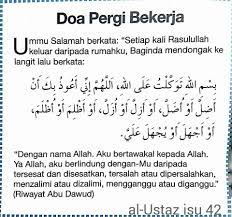 Doa Pergi Bekerja
Ummu Salamah berkata: "Setiap kali Rasulullah
keluar daripada rumahku, Baginda mendongak ke
langit lalu berkata:
بِسْمِ اللهِ تَوَكَّلْتُ عَلَى اللهِ، اَللَّهُمَّ إِنِّي أَعُوذُ بِكَ أَنْ
أَضِلَّ أَوْ أُضَلَّ، أَوْ أَزِلَّ أَوْ أُزَلَّ، أَوْ أَظْلِمَ، أَوْ أُظْلَمَ،
أَوْ أَجْهَلَ أَوْ يُجْهَلَ عَلَيَّ.
"Dengan nama Allah. Aku bertawakal kepada Allah.
Ya Allah, aku berlindung dengan-Mu daripada
tersesat dan disesatkan, tersalah atau dipersalahkan,
menzalimi atau dizalimi, mengganggu atau diganggu."
(Riwayat Abu Dawud)
al-Ustaz isu 42